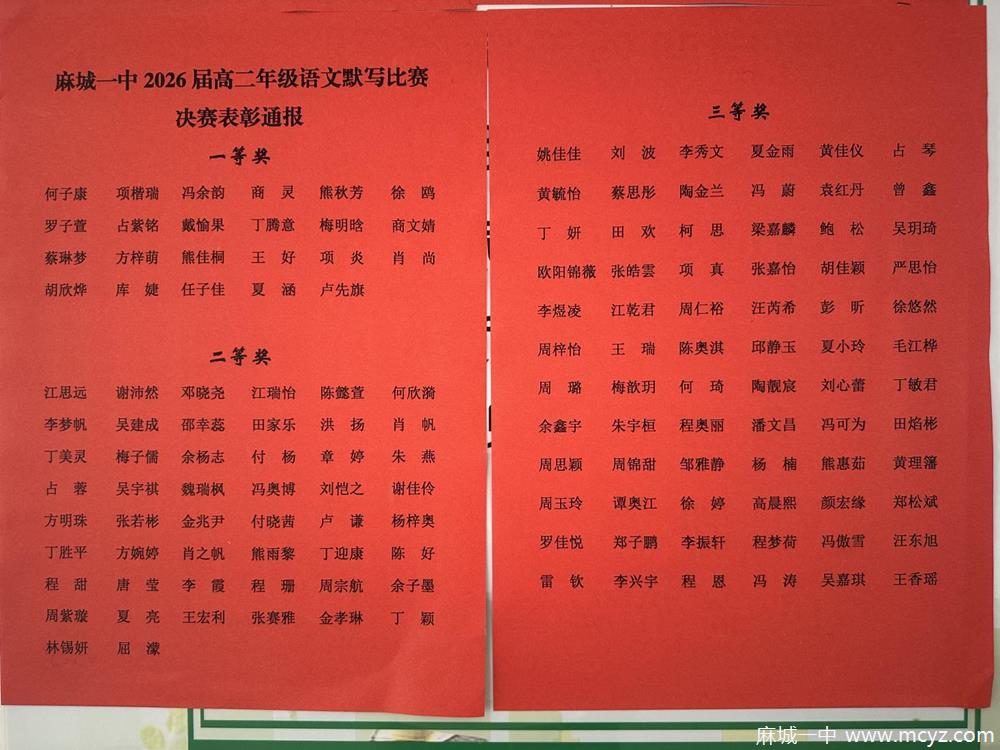 麻城一中 2026 届高二年级语文默写比赛
决赛表彰通报
一等奖
何子康 项楷瑞 冯余韵 商 灵 熊秋芳 徐 鸥
罗子萱 占紫铭 戴愉果 丁腾意 梅明晗 商文婧
蔡琳梦 方梓萌 熊佳桐 王 好 项 炎 肖 尚
胡欣烨 库 婕 任子佳 夏 涵 卢先旗
二等奖
江思远 谢沛然 邓晓尧 江瑞怡 陈懿萱 何欣漪
李梦帆 吴建成 邵幸蕊 田家乐 洪 扬 肖 帆
丁美灵 梅子儒 余杨志 付 杨 章 婷 朱 燕
占 蓉 吴宇祺 魏瑞枫 冯奥博 刘恺之 谢佳伶
方明珠 张若彬 金兆尹 付晓茜 卢 谦 杨梓奥
丁胜平 方婉婷 肖之帆 熊雨黎 丁迎康 陈 好
程 甜 唐 莹 李 霞 程 珊 周宗航 余子墨
周紫璇 夏 亮 王宏利 张赛雅 金孝琳 丁 颖
林锡妍 屈 濛
三等奖
姚佳佳 刘 波 李秀文 夏金雨 黄佳仪 占 琴
黄毓怡 蔡思彤 陶金兰 冯 蔚 袁红丹 曾 鑫
丁 妍 田 欢 柯 思 梁嘉麟 鲍 松 吴玥琦
欧阳锦薇 张皓雲 项 真 张嘉怡 胡佳颖 严思怡
李煜凌 江乾君 周仁裕 汪芮希 彭 昕 徐悠然
周梓怡 王 瑞 陈奥淇 邱静玉 夏小玲 毛江桦
周 璐 梅歆玥 何 琦 陶靓宸 刘心蕾 丁敏君
余鑫宇 朱宇桓 程奥丽 潘文昌 冯可为 田焰彬
周思颖 周锦甜 邹雅静 杨 楠 熊惠茹 黄理籓
周玉玲 谭奥江 徐 婷 高晨熙 颜宏缘 郑松斌
罗佳悦 郑子鹏 李振轩 程梦荷 冯傲雪 汪东旭
雷 钦 李兴宇 程 恩 冯 涛 吴嘉琪 王香瑶
麻城一中 www.mcyz.com